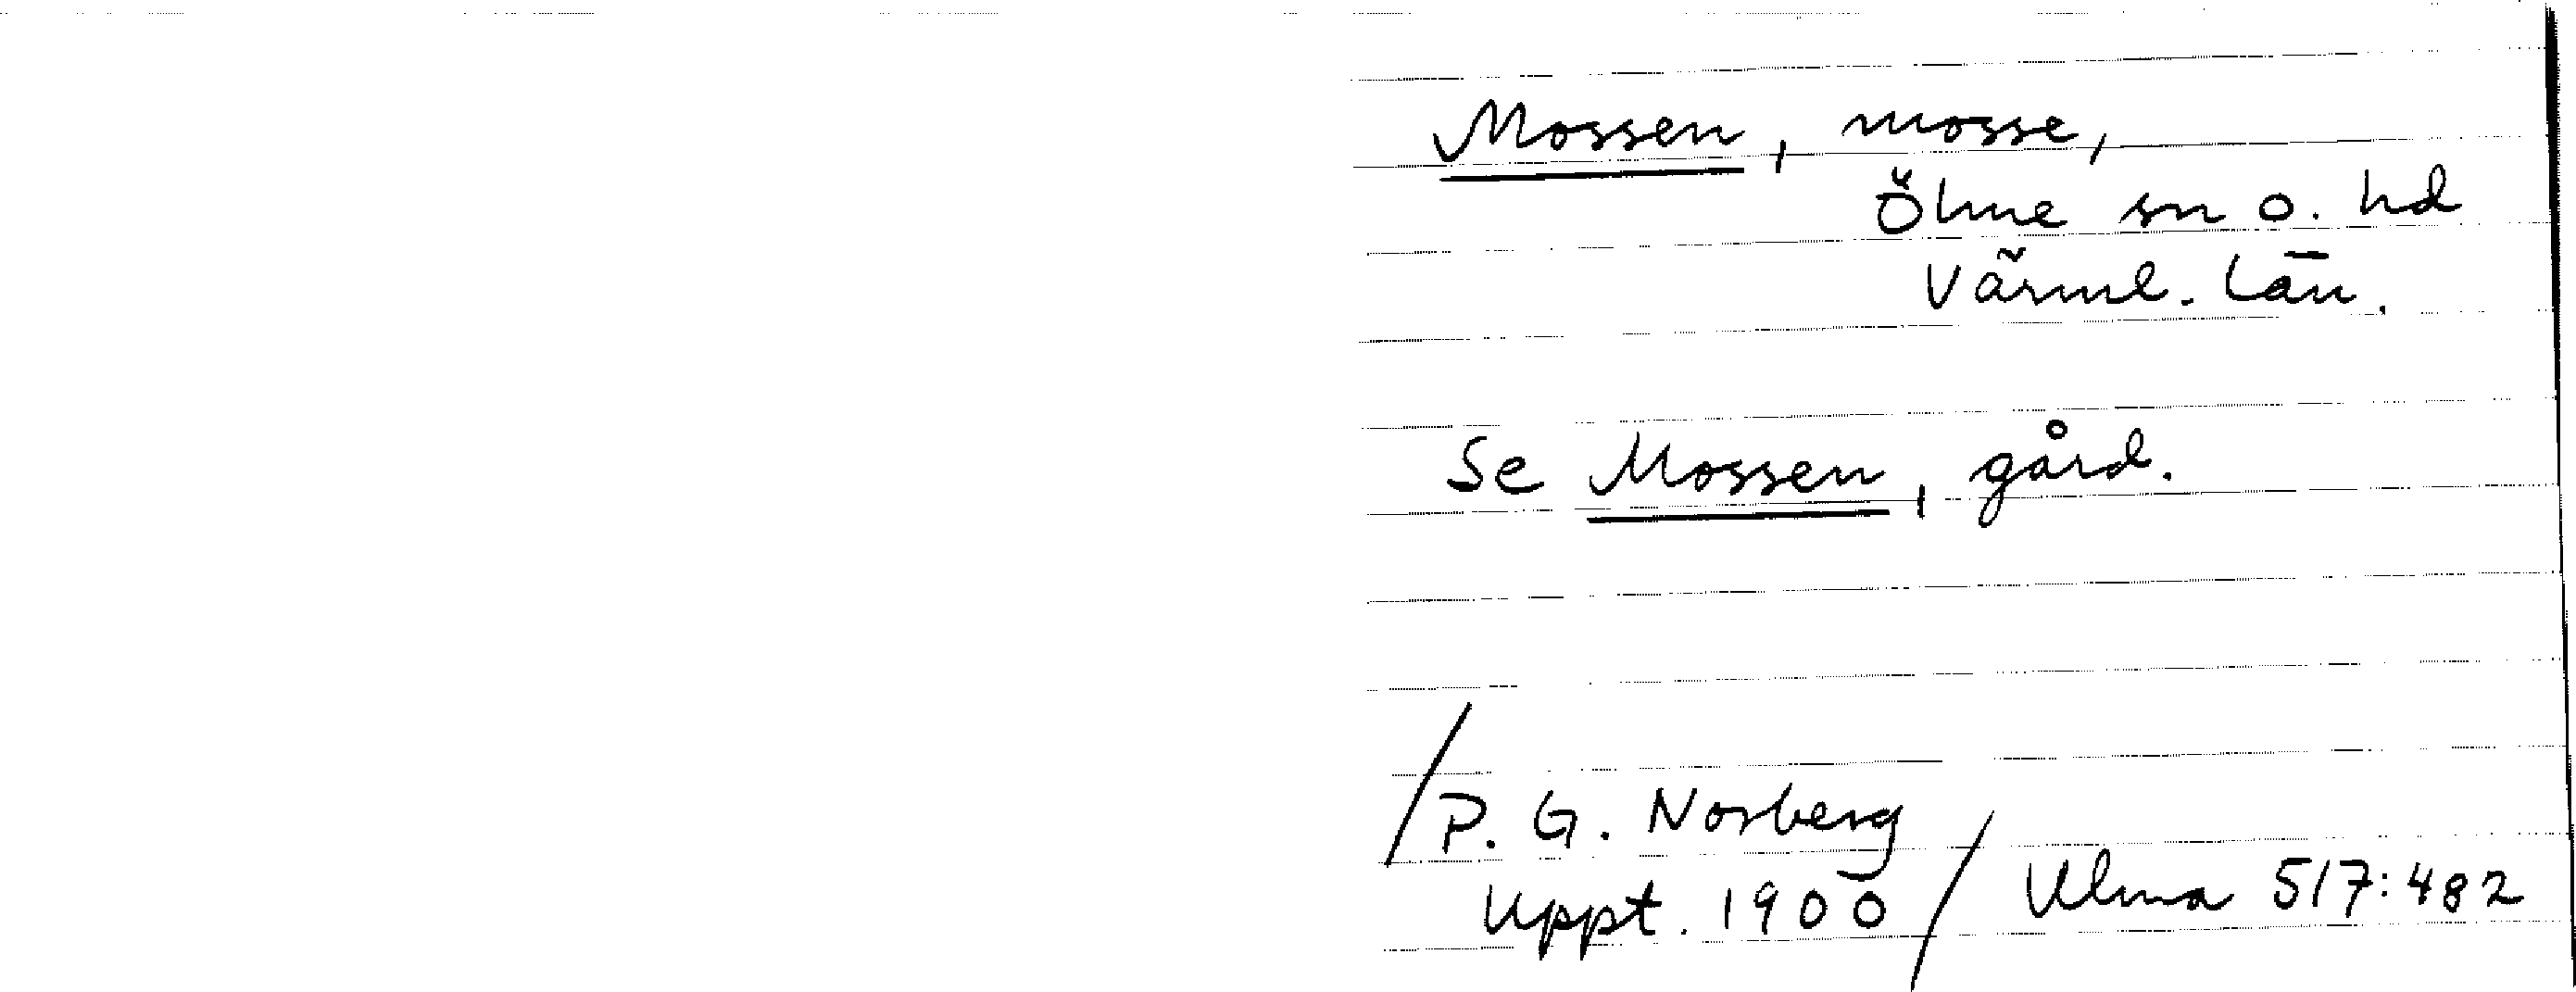 Mossen, mosse,
Ölme sn o. hd
Värml. län.
Se Mossen, gård.
/P. G. Norberg
Uppt. 1900/ Ulma 517:482